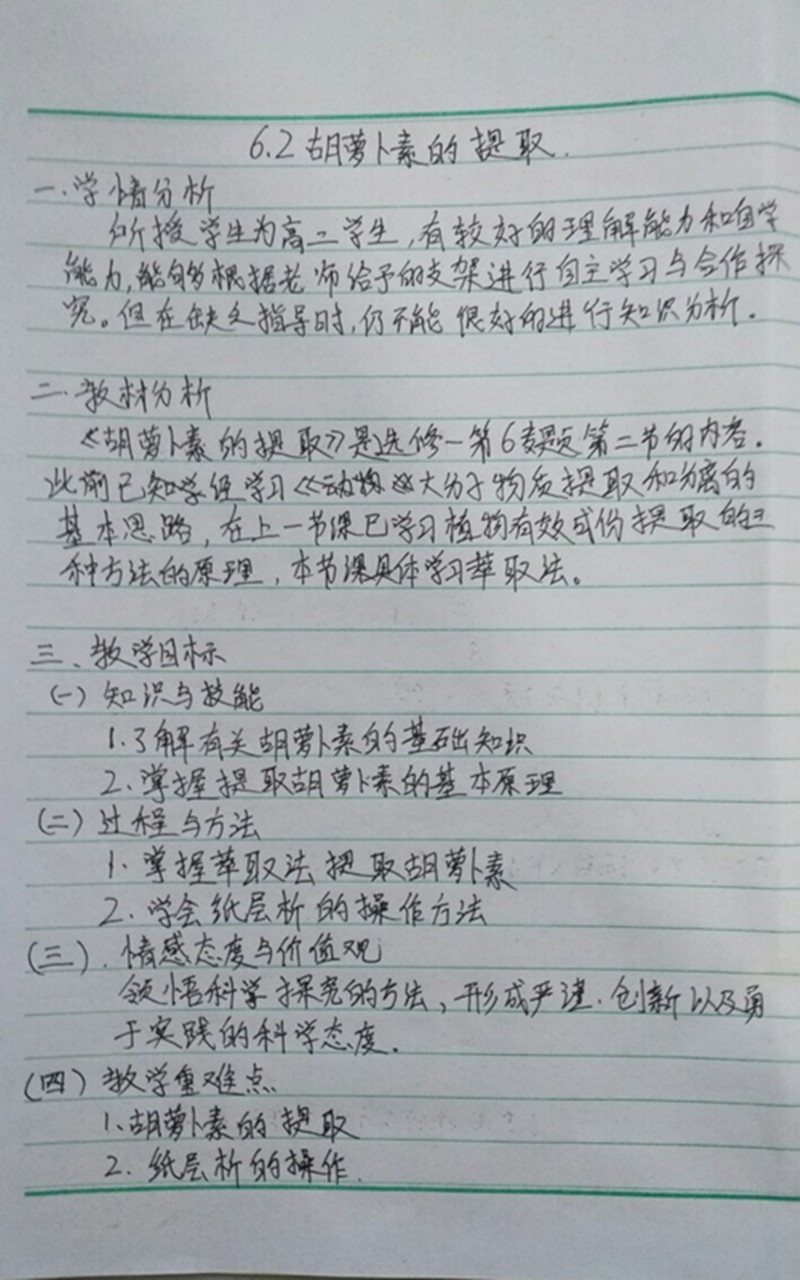 6.2 胡萝卜素的提取.
一.学情分析
所授学生为高二学生,有较好的理解能力和自学
能力,能够根据老师给予的支架进行自主学习与合作探
究。但在缺乏指导时,仍不能很好的进行知识分析.
二.教材分析
《胡萝卜素的提取》是选修一第6专题第二节的内容.
此前已知学经学习大分子物质提取和分离的
基本思路,在上一节课已学习植物有效成份提取的三
种方法的原理,本节课具体学习萃取法。
三、教学目标
(一)知识与技能
1.了解有关胡萝卜素的基础知识
2.掌握提取胡萝卜素的基本原理
(二)过程与方法
1.掌握萃取法提取胡萝卜素
2.学会纸层析的操作方法
(三).情感态度与价值观
领悟科学探究的方法,形成严谨.创新以及勇
于实践的科学态度.
(四)教学重难点
1.胡萝卜素的提取
2.纸层析的操作.